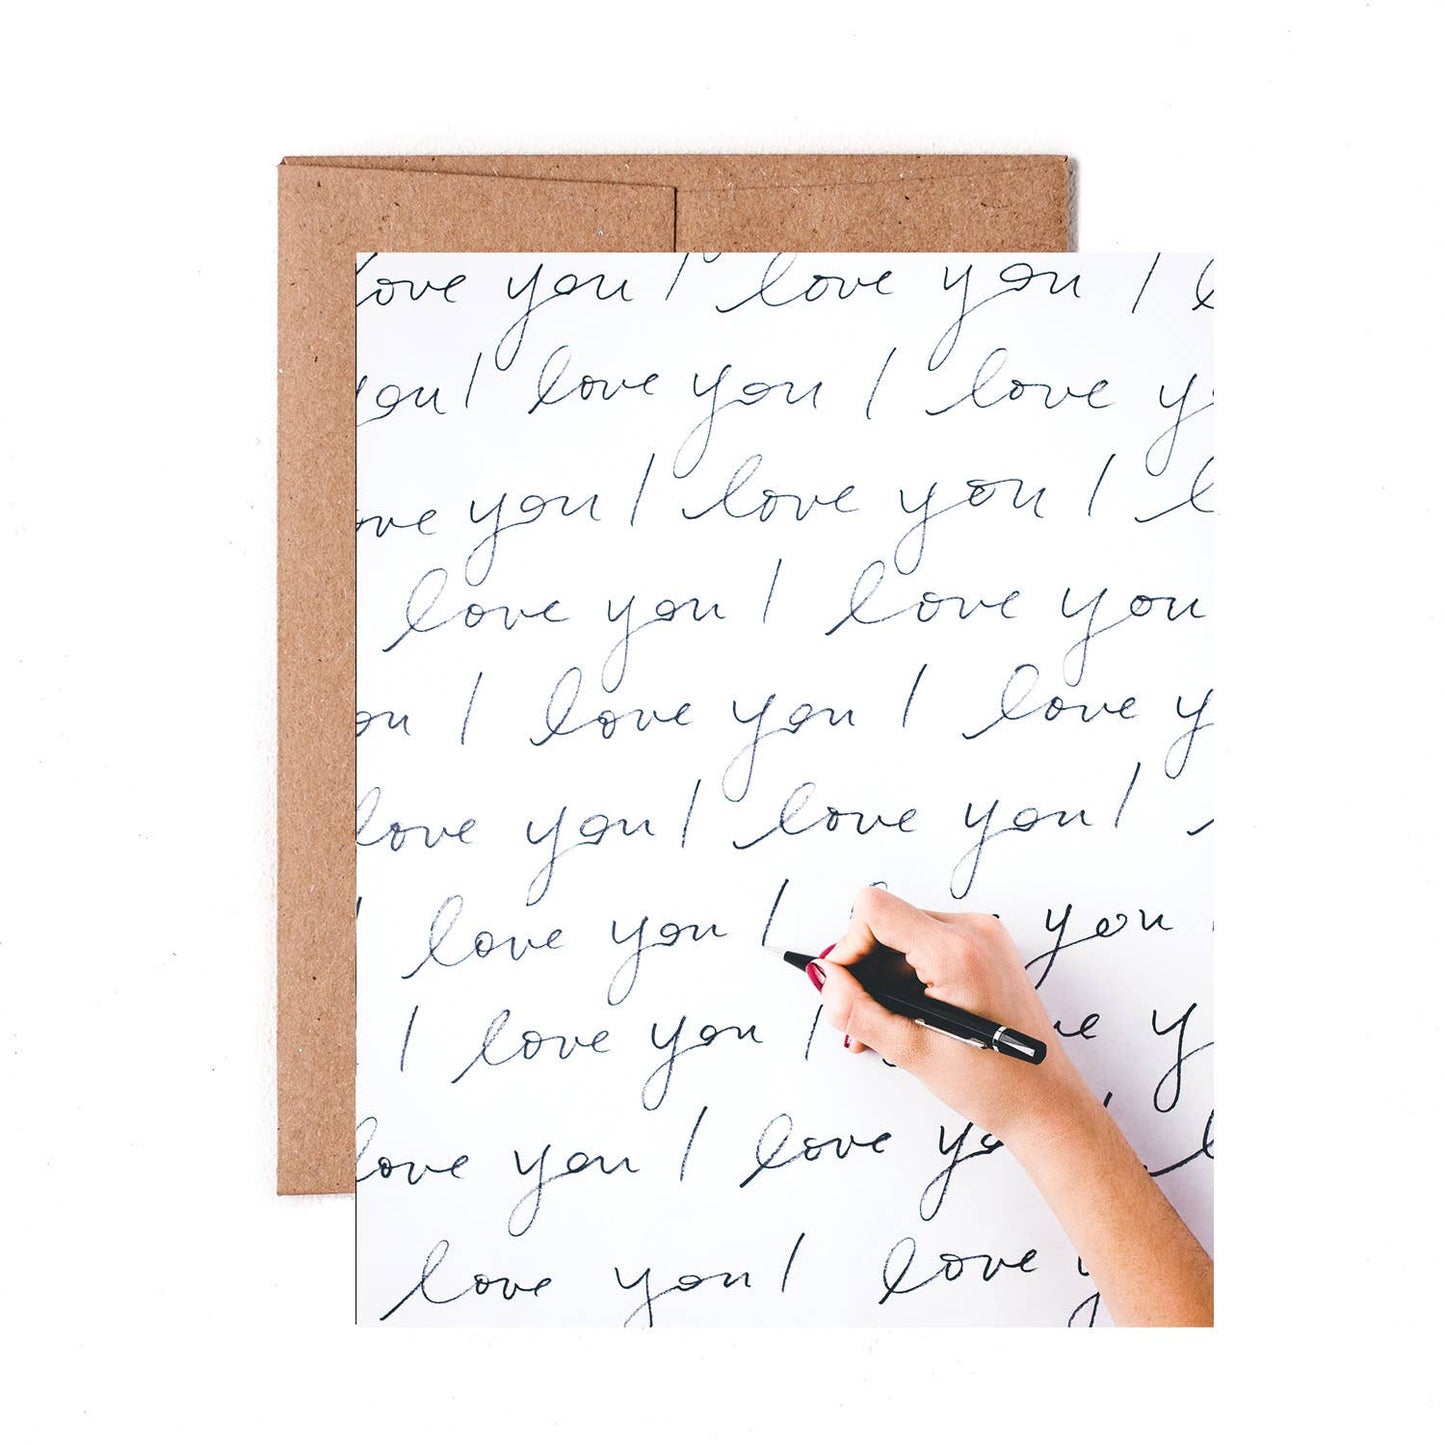 love you I love you I
you I love you I love y
ove you I love you I l
love you I love you
ou I love you I love y
love you I love you I
I love you I you
I love you I ve y
love you I love yo l
love you I love